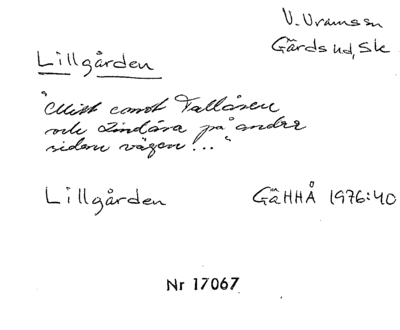 V. Vramssn
Gärds hd, Sk
Lillgården
"Mitt emot Tallåsen
och Lindåsa på andra
sidan vägen!..."
Lillgården GäHHÅ 1976:40
Nr 17067